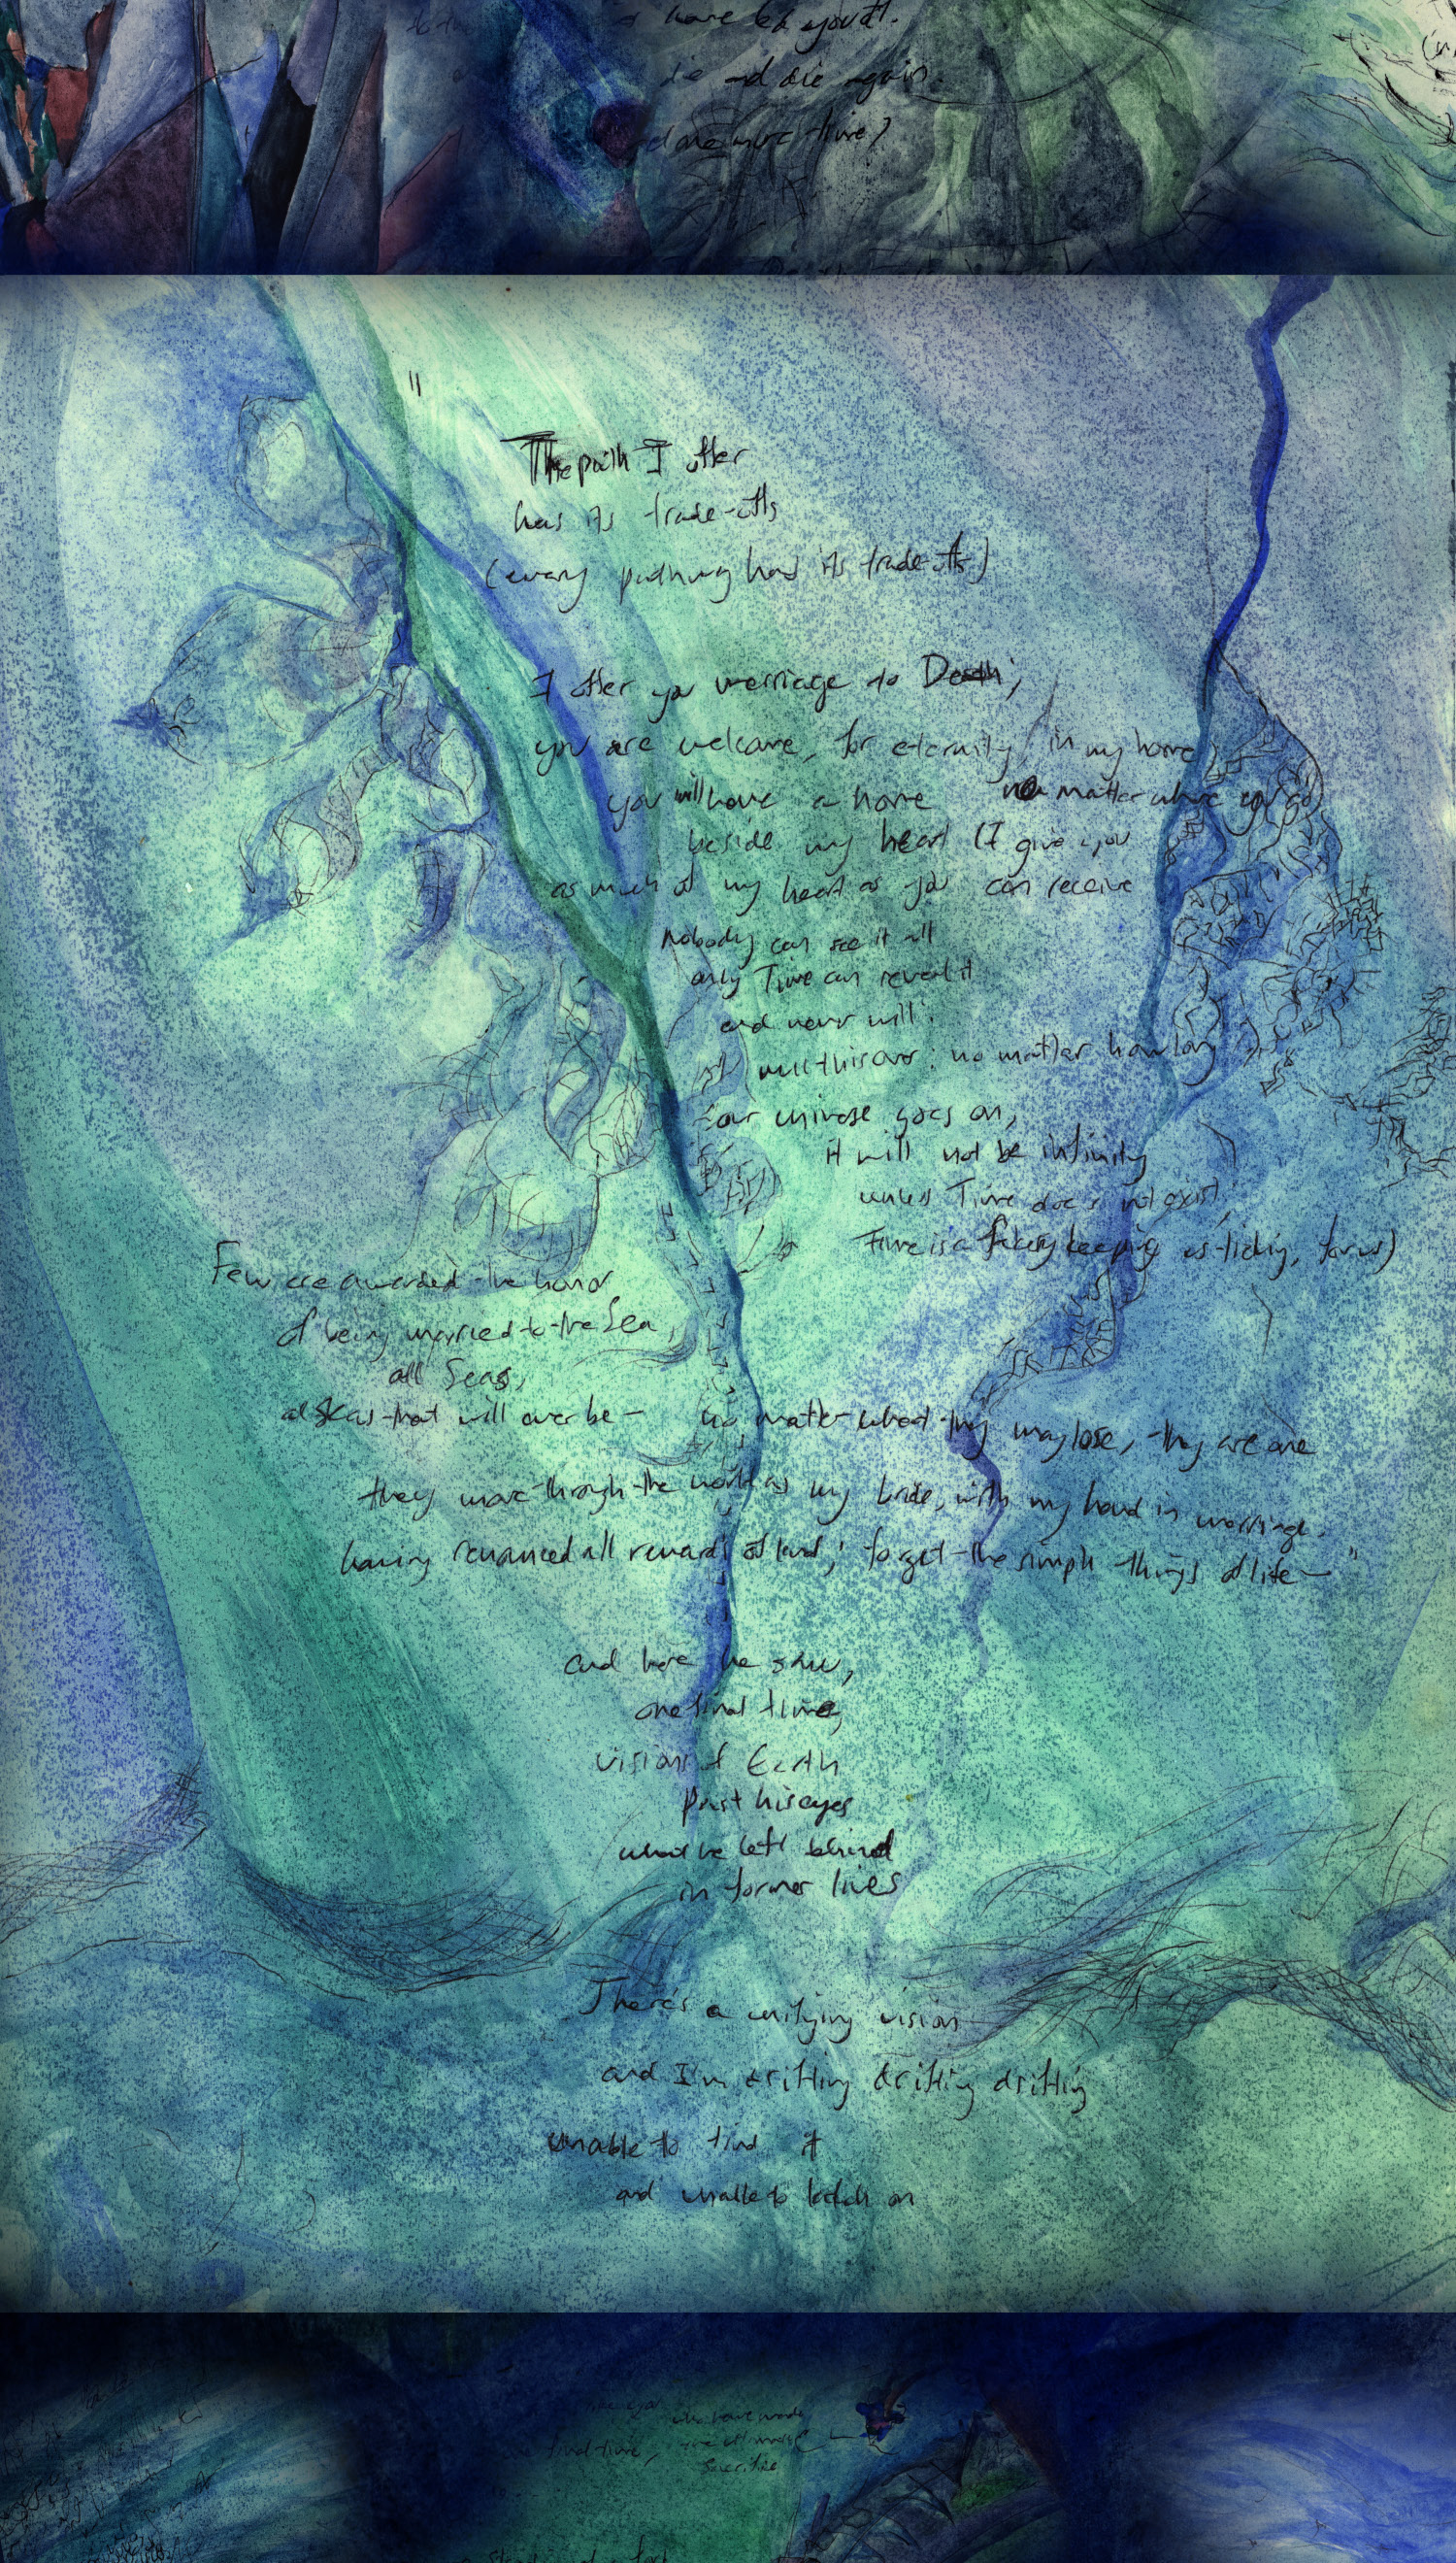 have let you at.
die and die again.
me more time?
"
The path I offer
has its trade-offs
(every pathway has its trade-offs)
I offer you marriage to Death;
you are welcome, for eternity, in my home
you will have a home no matter where you go
beside my heart (I give you
as much of my heart as you can receive
nobody can see it all
only Time can reveal it
and never will:
no matter how long
our universe goes on,
it will not be infinity
unless Time does not exist;
Time is a keeping as ticking, for us)
Few are awarded the honor
of being married to the Sea,
all Seas,
all Seas that will ever be — no matter what they may lose, they are one
they move through the world as my bride, with my hand in marriage.
having renounced all rewards of land; forget the simple things of life —"
and here he saw,
one final time,
visions of Earth
past his eyes
what he left behind
in former lives
There's a unifying vision
and I'm drifting drifting drifting
unable to find it
and unable to latch on
who have made
final time, the ultimate
sacrifice